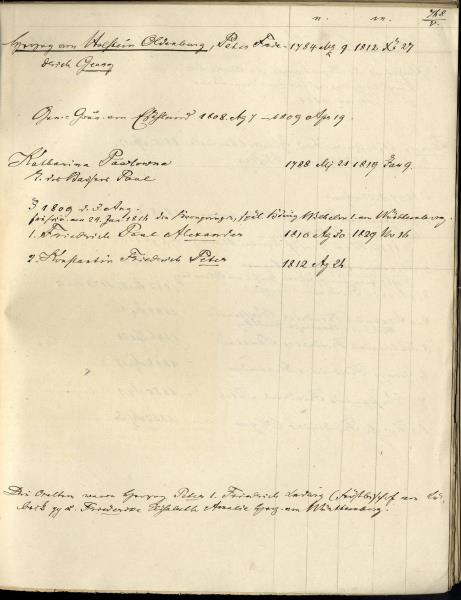 768
n. m. v.
Herzog von Holstein Oldenburg, Peter Frie- 1784 9 1812 27
drich Georg
Gen. Gouv. von Esthland 1808 Ag 7 – 1809 Apr 19.
Katharina Pawlowna 1788 Mj 21 1819 Jan 9.
T. des Kaisers Paul
1809 d. 3 Aug.
24 Jan 1816 den Kronprinzen, spät. König Wilhelm I. von Württemberg.
1. Friedrich Paul Alexander 1810 Ag 30 1829 Nv 16
2. Konstantin Friedrich Peter 1812 Ag 26
Die Aeltern waren Herzog Peter I. Friedrich Ludwig (Fürstbischof von Lü-
beck u. Friederike Elisabeth Amalie Herz. von Württemberg.